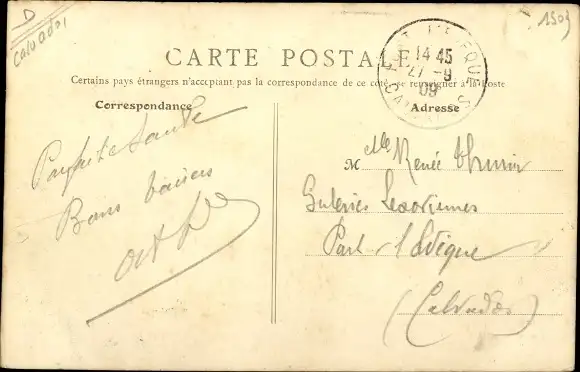 D
Calvados
1909
CARTE POSTALE
Certains pays étrangers n'acceptant pas la correspondance de ce côté, se renseigner à la Poste
PONT-L'EVEQUE
14 45
27 -9
09
CALVADOS
Correspondance
Adresse
Parfaite Santé
Bons baisers
M elle Renée
Galeries Lexoviennes
Pont l'Evêque
(Calvados)